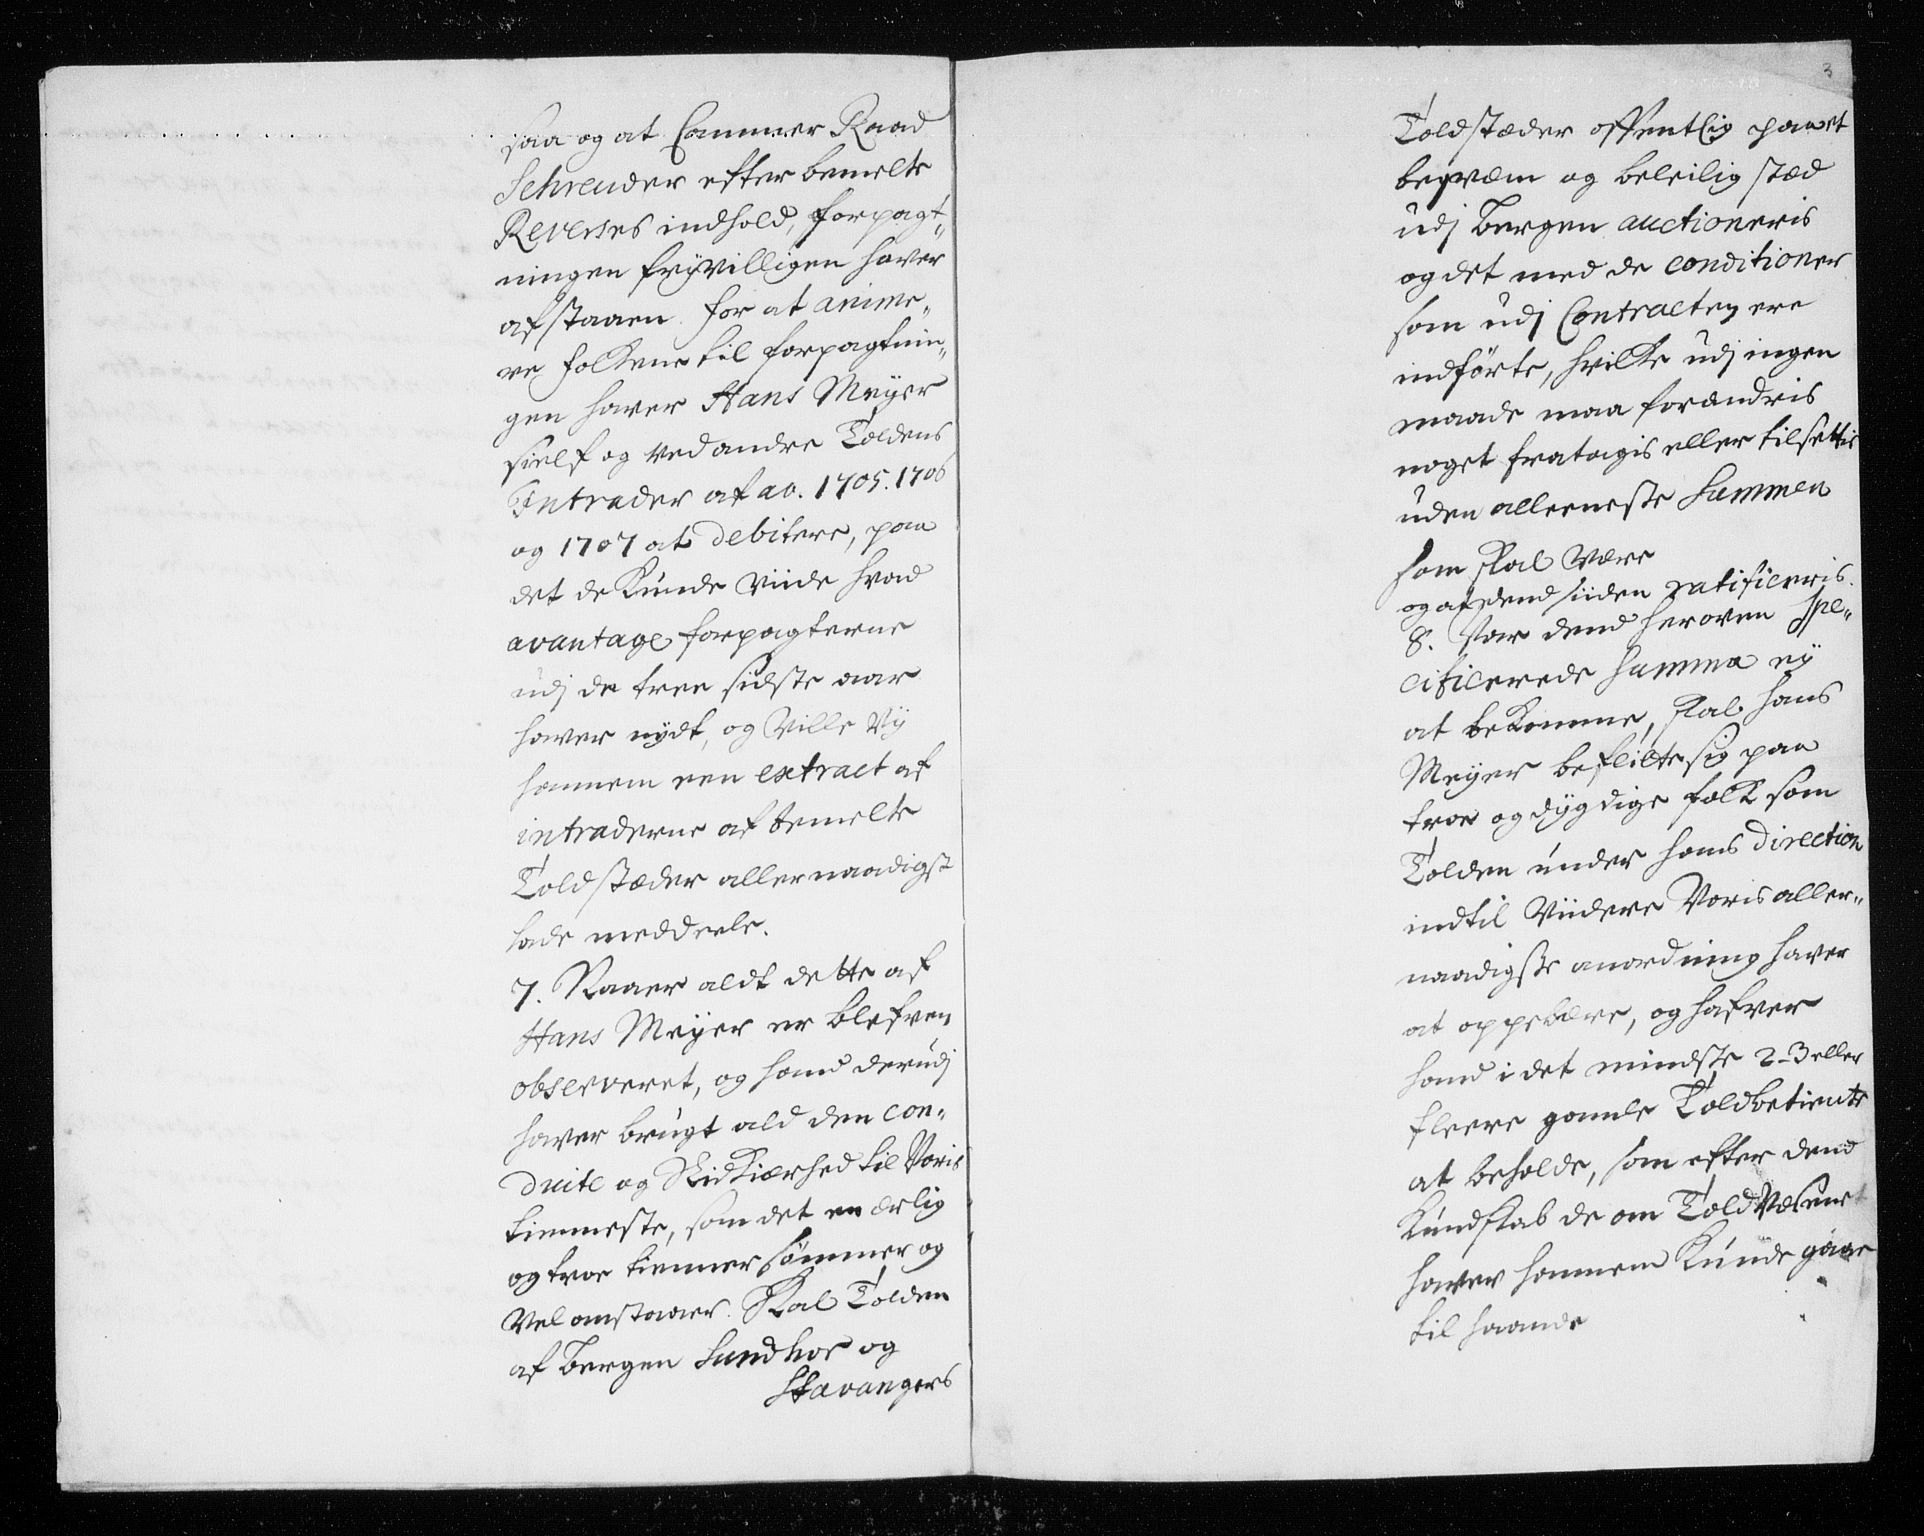 saa og at Cammer Raad
Schreuder efter bemelte
Reverses indhold, forpagt„
ningen frÿvilligen haver
afstaaen. for at anime„
re folkene til forpagtnin„
gen haver Hans Meÿer
sielf og ved andre Toldens
Intrader af ao. 1705. 1706
og 1707 at debitere, paa
det de Kunde viide hvad
avantage forpagterne
udj de tree sidste aar
haver nÿdt, og ville Vÿ
hannem een extract af
intraderne af bemelte
Toldstæder allernaadigst
lade meddeele.
7. Naaer aldt dette af
Hans Meÿer er blefven
observeret, og hand derudj
haver brugt ald den con„
duite og Nidkiærhed til Voris
tienneste, som det en ærlig
og troe tienner sømmer og
vel anstaaer. Skal Tolden
af Bergen Sundhor og
Stavangers
3
Toldstæder offentlig paa et
beqvæm og beleilig stæd
udj Bergen auctioneris
og det med de conditioner
som udj Contracten ere
indførte, hvilke udj ingen
maade maa forandris
noget fratagis eller tilsettis
uden alleeneste Summen
som skal være
og af dend siiden ratificeris.
8. Var dend heroven spe„
cificerede Summa eÿ
at bekomme, skal Hans
Meÿer beflitte sig paa
troe og dÿgdige folk som
Tolden under hans direction
indtil viidere Voris aller„
naadigste anordning haver
at oppebære, og hafver
hand i det mindste 2-3 eller
fleere gamle Toldbetiente
at beholde, som efter dend
Kundskab de om Toldvæsenet
haver hannem Kunde gaae
til haande